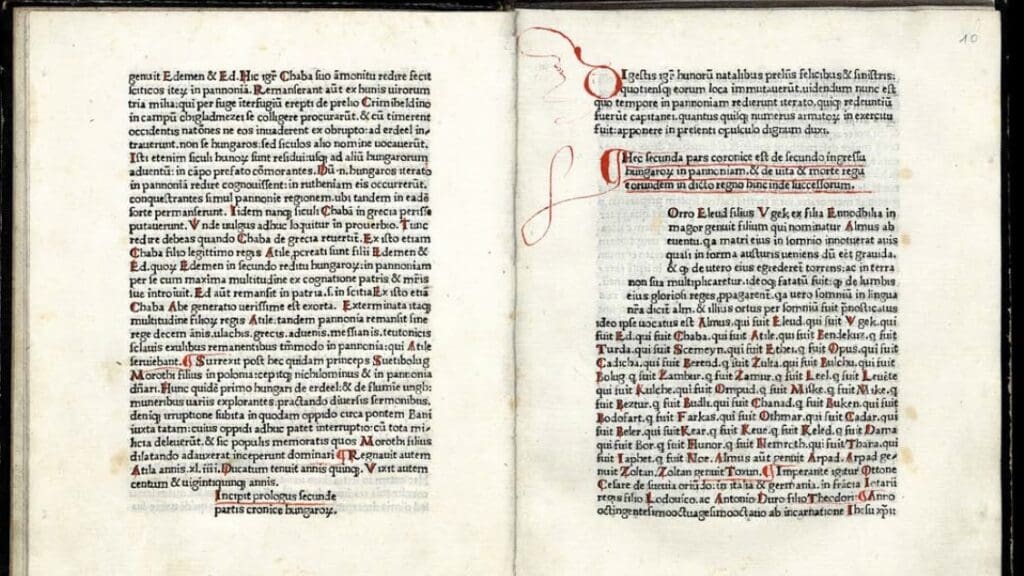 genuit Edemen & Ed. Hic igr̄ Chaba suo āmonitu redire fecit
sciticos iteꝝ in pannoniā. Remanserant aūt ex hunis uirorum
tria milia: qui per fuge iterfugiū erepti de prelio Crimiheldino
in campū chigladmezei se colligere procurarūt. & cū timerent
occidentis natōnes ne eos inuaderent ex obrupto: ad erdeel in-
trauerunt. non se hungaros: sed siculos alio nomine uocauerūt.
Isti etenim siculi hunoꝝ sunt residui: usqꝫ ad aliū hungarorum
aduentū: in cāpo prefato cōmorantes. Dū. n. hungaros iterato
in pannoniā redire cognouissent: in rutheniam eis occurrerūt.
conquestrantes simul pannonie regionem. ubi tandem in eadē
sorte permanserunt. Iidem nanqꝫ siculi Chabā in grecia perisse
putauerunt. Vnde uulgus adhuc loquitur in prouerbio. Tunc
redire debeas quando Chaba de grecia reuertit̄. Ex isto etiam
Chaba filio legittimo regis Atile, pcreati sunt filii Edemen &
Ed. quoꝝ Edemen in secundo reditu hungaroꝝ: in pannoniam
per se cum maxima multitudine ex cognatione patris & mr̄is
sue introiuit. Ed aūt remansit in patria. s. in scitia Ex isto etiā
Chaba Abe generatio uerissime est exorta. Exterminata itaqꝫ
multitudine filioꝝ regis Atile. tandem pannonia remansit sine
rege decem ānis. ulachis, grecis, aduenis, messianis, teutonicis
sclauis exulibus remanentibus tm̄modo in pannonia: qui Atile
seruiebant. ¶ Surrexit post hec quidam princeps Suetibolug
Morothi filius in polonia: cepitqꝫ nichilominus & in pannonia
dn̄ari. Hunc quidē primo hungari de erdeel: & de flumie ungh:
muneribus uariis explorantes, practando diuersis sermonibus,
deniqꝫ irruptione subita in quodam oppido circa pontem Bani
iuxta tatam: cuius oppidi adhuc patet interruptio: cū tota mi-
licia deleuerūt. & sic populis memoratis quos Morothi filius
dilatando adauxerat inceperunt dominari ¶ Regnauit autem
Atila annis. xl. iiii. Ducatum tenuit annis quinqꝫ. Vixit autem
centum & uigintiquinqꝫ annis.
Incipit prologus secunde
partis cronice hungaroꝝ.
10
DIgestis igr̄ hunorū natalibus preliis felicibus & sinistris:
quotiensqꝫ eorum loca immutauerūt. uidendum nunc est
quo tempore in pannoniam redierunt iterato, quiqꝫ redeuntiū
fuerūt capitanei. quantus quilqꝫ numerus armatoꝝ in exercitu
fuit: apponere in presenti opusculo dignum duxi.
¶ Hec secunda pars coronice est de secundo ingressu
hungaroꝝ in pannoniam. & de uita & morte regū
eorundem in dicto regno hinc inde successorum.
Orro Eleud filius Vgek ex filia Ennodbilia in
magor genuit filium qui nominatur Almus ab
euentu. qa matri eius in somnio innotuerat auis
quasi in forma austuris ueniens dū eēt grauida.
& qꝫ de utero eius egrederet̄ torrens: ac in terra
non sua multiplicaretur. ideoqꝫ fatatū fuit. qꝫ de lumbis
eius gloriosi reges, ppagarent̄. qa uero somniū in lingua
nr̄a dicit̄ alm. & illius ortus per somniū fuit, pnosticatus
ideo ipse uocatus est Almus. qui fuit Eleud. qui fuit Vgek. qui
fuit Ed. qui fuit Chaba. qui fuit Atile. qui fuit Bendekuz. q̄ fuit
Turda. qui fuit Scemeyn. qui fuit Ethei. q̄ fuit Opus. qui fuit
Cadicha. qui fuit Berend. q̄ fuit Zulta. qui fuit Bulchu. qui fuit
Bolug q̄ fuit Zambur. q̄ fuit Zamur. q̄ fuit Leel. q̄ fuit Leuēte
qui fuit Kulche. qui fuit Ompud. q̄ fuit Miske. q̄ fuit Mike. q̄
fuit Beztur. q̄ fuit Budli. qui fuit Chanad. q̄ fuit Buken. qui fuit
Bodofart. q̄ fuit Farkas. qui fuit Othmar. qui fuit Cadar. qui
fuit Beler. qui fuit Kear. q̄ fuit Keue. q̄ fuit Keled. q̄ fuit Dama
qui fuit Bor. q̄ fuit Hunor. q̄ fuit Nemroth. qui fuit Thana. qui
fuit Iaphet. q̄ fuit Noe. Almus aūt genuit Arpad. Arpad ge-
nuit Zoltan. Zoltan genuit Toxun. ¶ Imperante igitur Ottone
Cesare de sueuia oriūdo. in italia & germania. in frācia Lotarii
regis filio Lodouico. ac Antonio Duro filio Theodori: ¶ Anno
octingentesimooctuagesimooctauo ab incarnatione Ihesu xp̄i